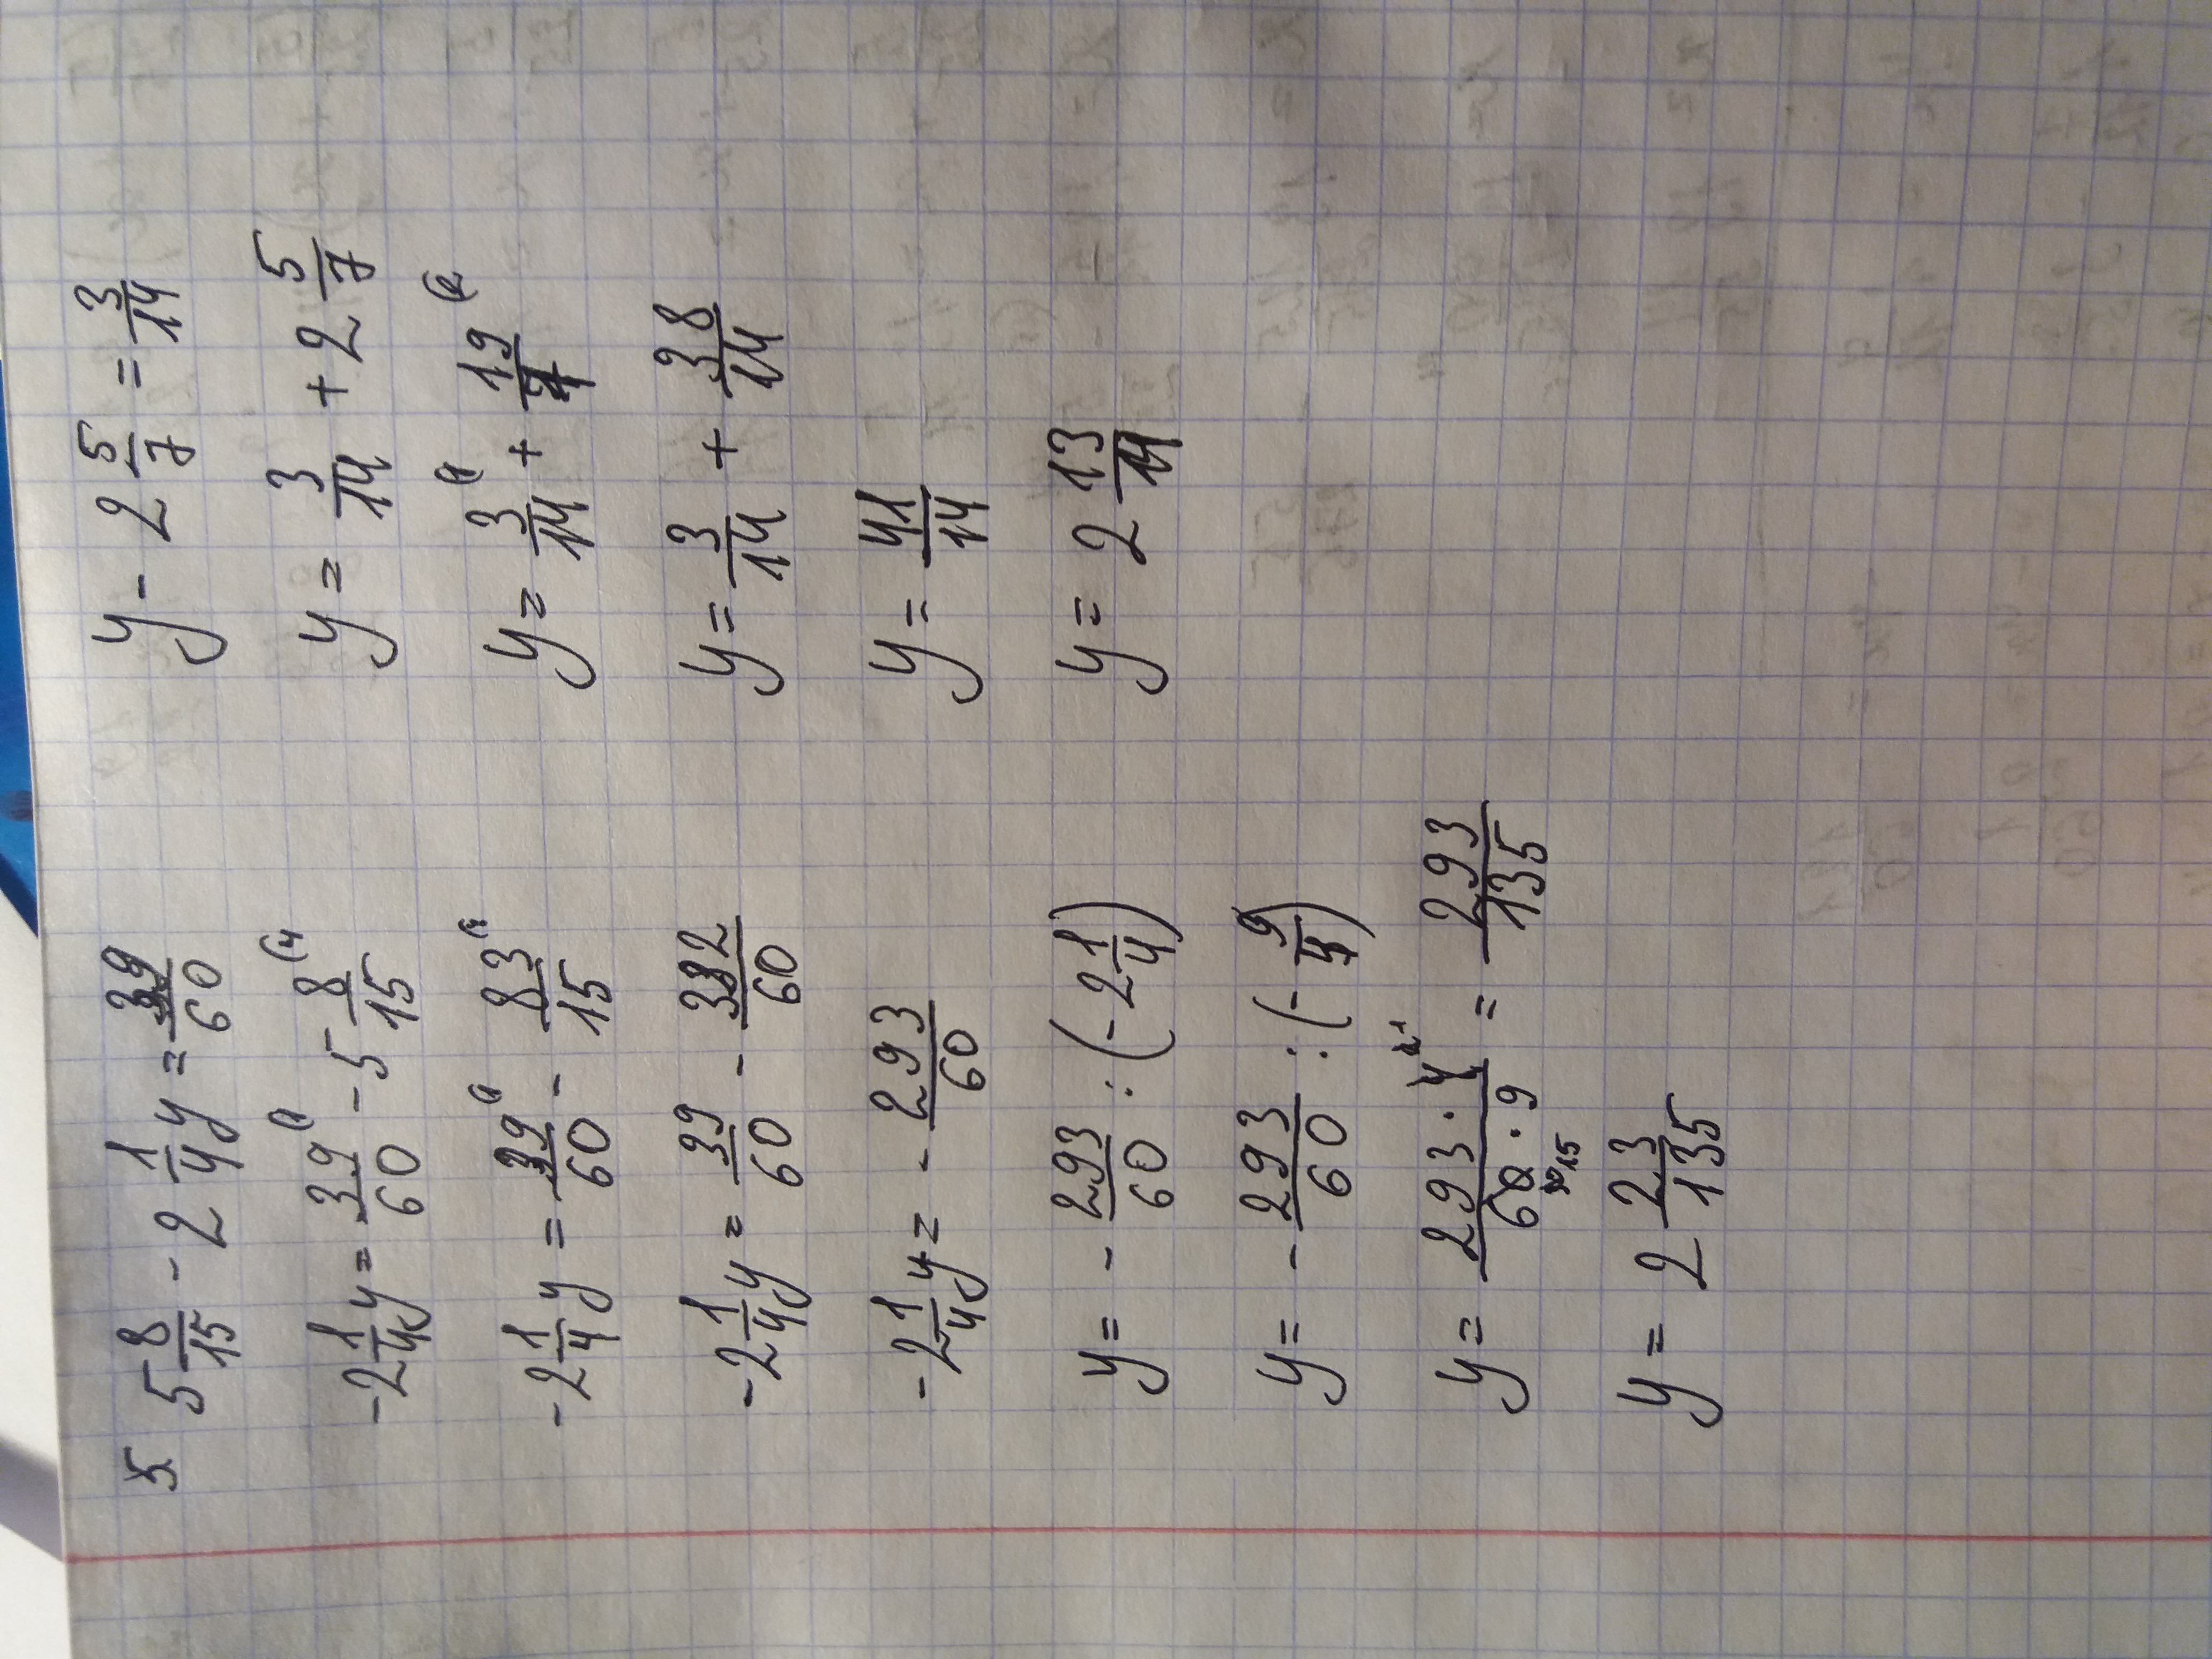 5 5 8/15 - 2 1/4 y = 39/60
-2 1/4 y = 39/60 (1 - 5 8/15 (4
-2 1/4 y = 39/60 (1 - 83/15 (4
-2 1/4 y = 39/60 - 332/60
-2 1/4 y = - 293/60
y = - 293/60 : (-2 1/4)
y = - 293/60 : (- 9/4)
y = 293 · 4 1 / 60 15 · 9 = 293/135
y = 2 23/135
y - 2 5/7 = 3/14
y = 3/14 + 2 5/7
y = 3/14 (1 + 19/7 (2
y = 3/14 + 38/14
y = 41/14
y = 2 13/14